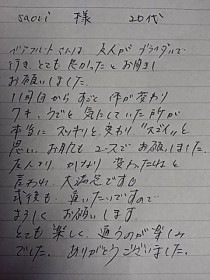 saori 様 20代
ベアフルートさんは 友人が ブライダルで
行き、とても良かったとお聞きし
お願いしました。
1回目からすごく体が変わり
ワキ、うでと気にしていた所が
本当に スッキリと変わり "スゴイ"と
思い、お月たもコースでお願いしました。
友人より、かなり変わったねと
言われ 大満足です。
式後も 通いたいですので
よろしく お願いします
とても 楽しく、通うのが楽しみ
でした。ありがとうございました。